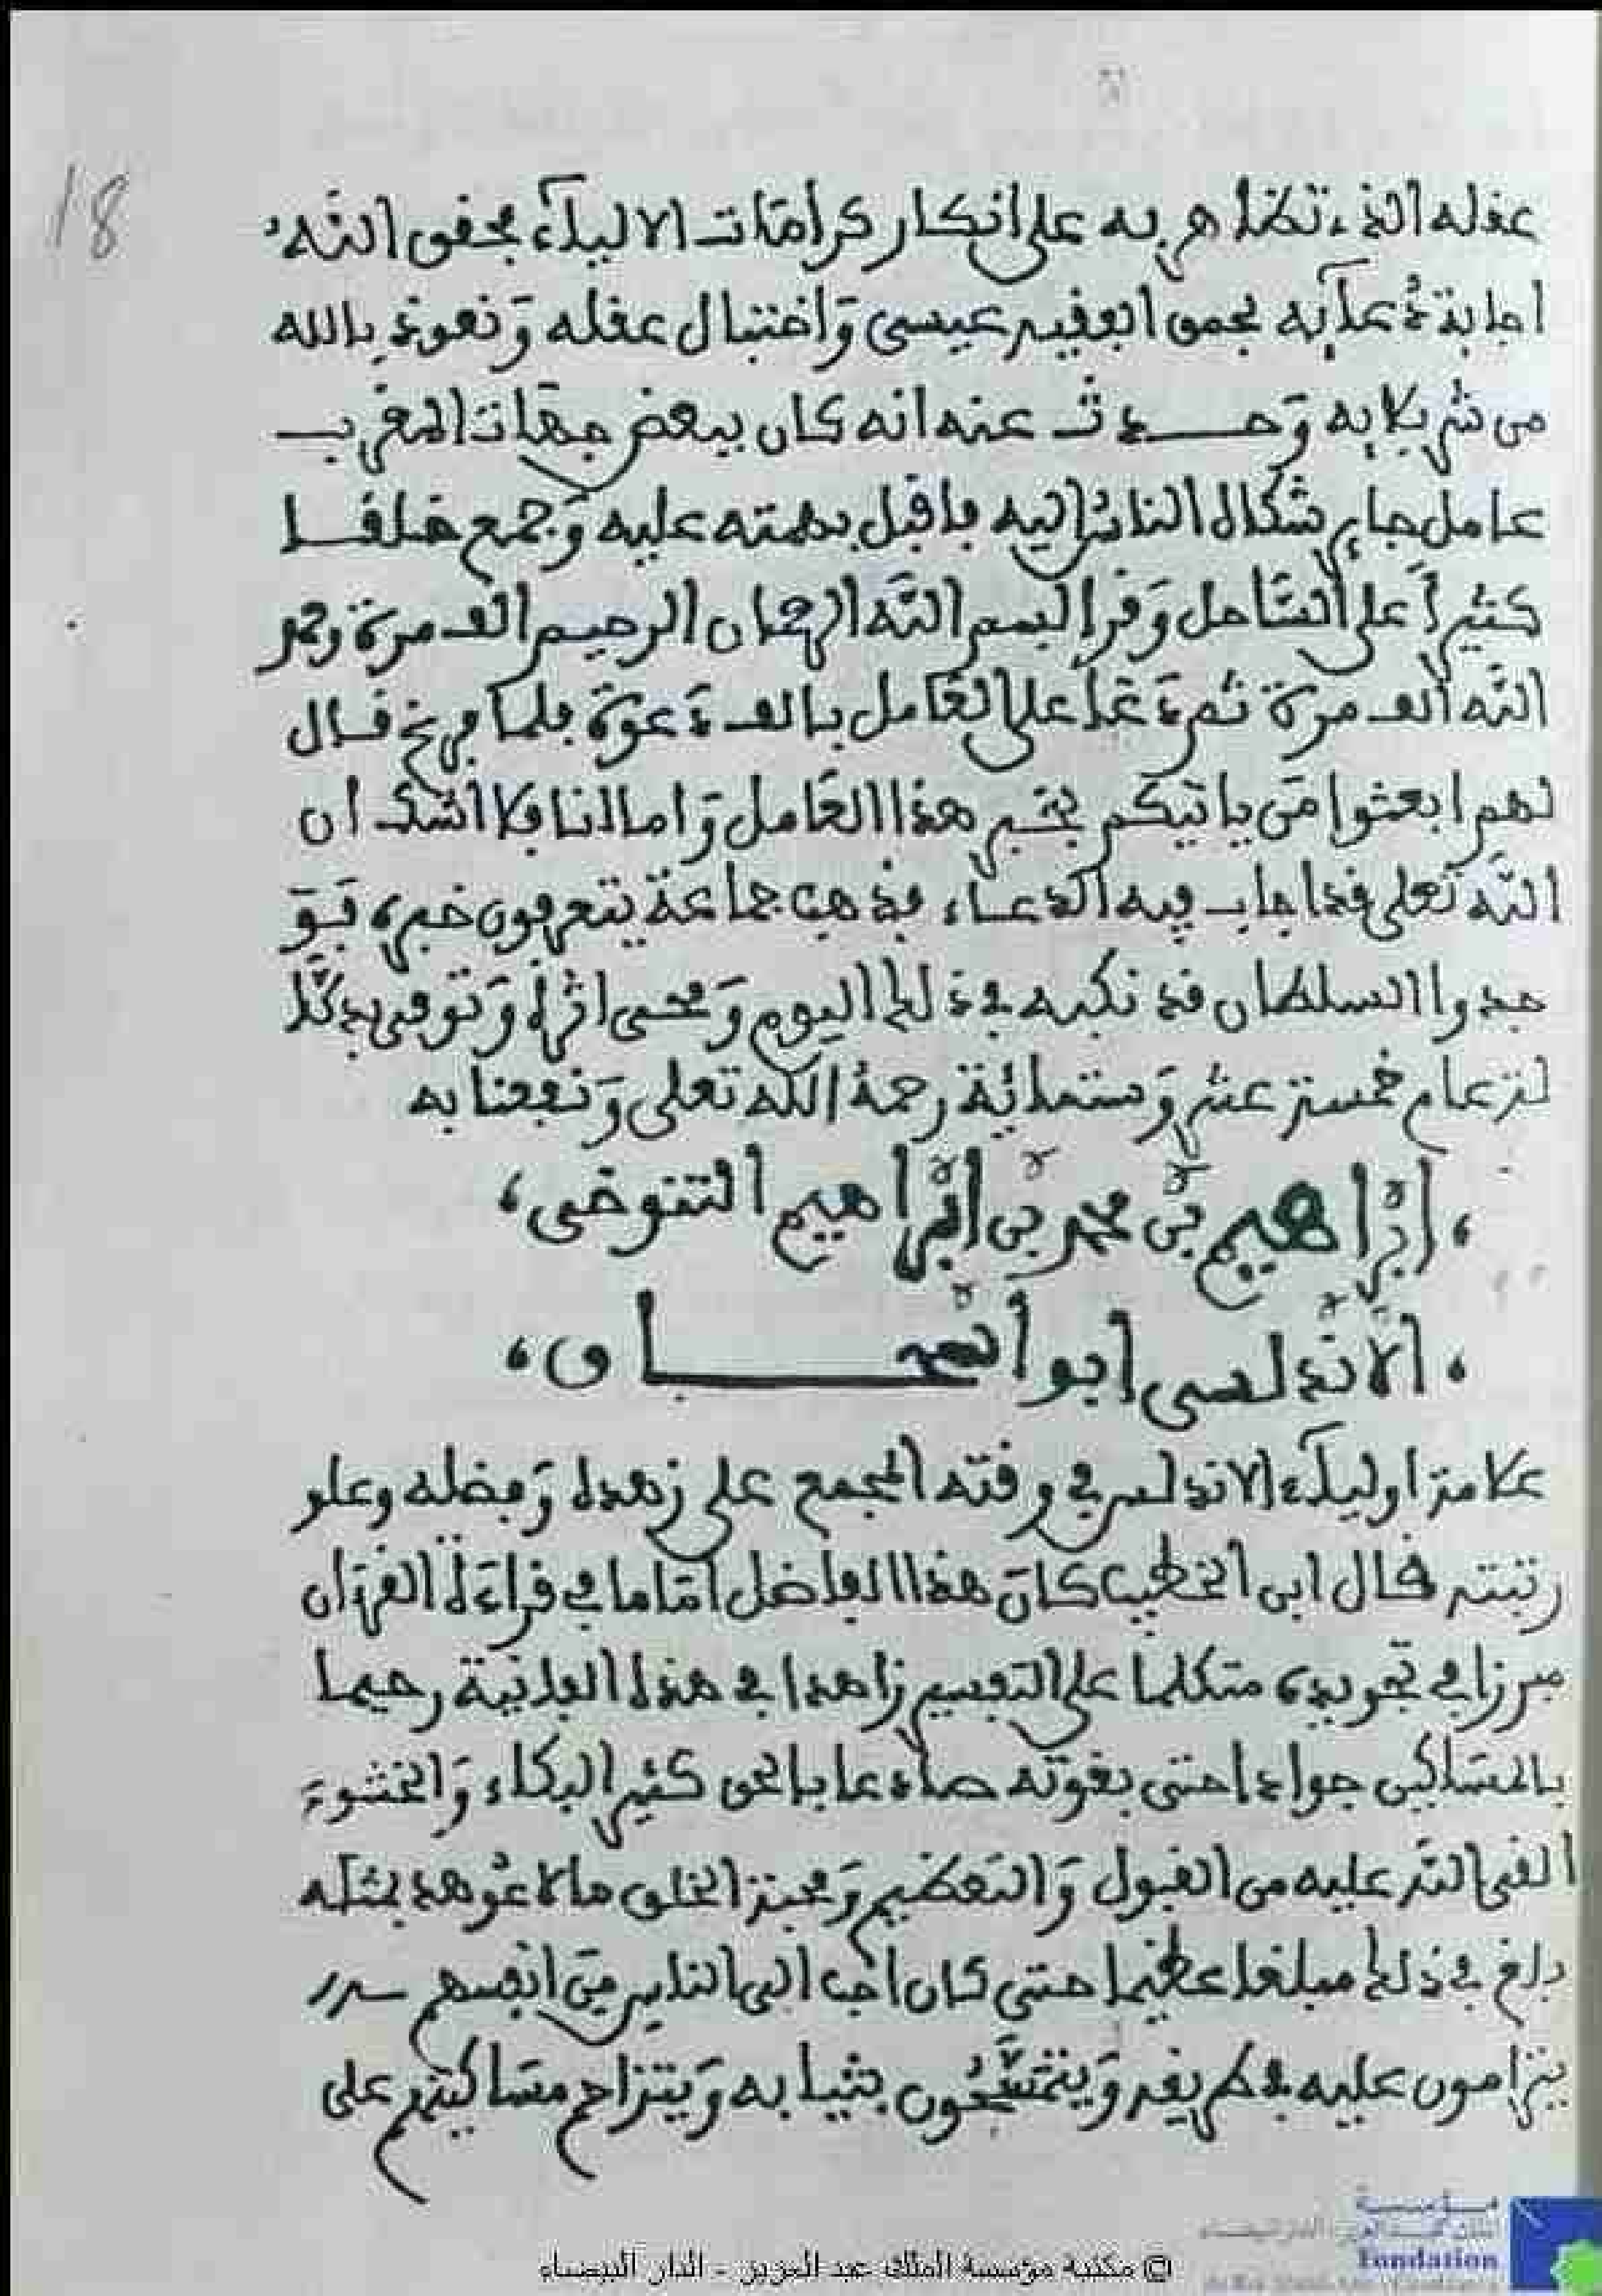 18
عقله الذي تظاهر به على انكار كرامات الاولياء فحقق الله
اجابة دعائه بحمق الفقيه عيسى واختبال عقله ونعوذ بالله
من شر بلايه وحدث عنه انه كان ببعض جهات المغرب
عامل جاير شكا الناس اليه فاقبل بهمته عليه وجمع خلقا
كثيرا على الساحل وقرا بسم الله الرحمان الرحيم الف مرة وحمد
الله الف مرة ثم دعا على العامل بالف دعوة فلما فرغ قال
لهم ابعثوا من ياتيكم بخبر هذا العامل واما انا فلا اشك ان
الله تعلى قد اجاب فيه الدعاء فذهب جماعة يتعرفون خبره فو
جدوا السلطان قد نكبه في ذلك اليوم ومحى اثره وتوفي
عام خمسة عشر وستمائة رحمه الله تعلى ونفعنا به
ابراهيم بن محمد بن ابراهيم التنوخي
الاندلسي ابو اسحاق
علامة اولياء الاندلس في وقته المجمع على زهده وفضله وعلو
رتبته قال ابن الخطيب كان هذا الفاضل اماما في قراءة القرءان
مبرزا في تجويده متكلما على التفسير زاهدا في هذه الفانية رحيما
بالمساكين جوادا حتى بقوته صادعا بالحق كثير البكاء والخشوع
القى الله عليه من القبول والتعظيم ومحبة الخلق ما لا عوهد بمثله
بلغ في ذلك مبلغا عظيما حتى كان احب الى الناس من انفسهم
يتزاحمون عليه في طريقه ويتمسحون بثيابه ويتزاحم مساكينهم على
© مكتبة مؤسسة الملك عبد العزيز - الدار البيضاء
مؤسسة
Fondation